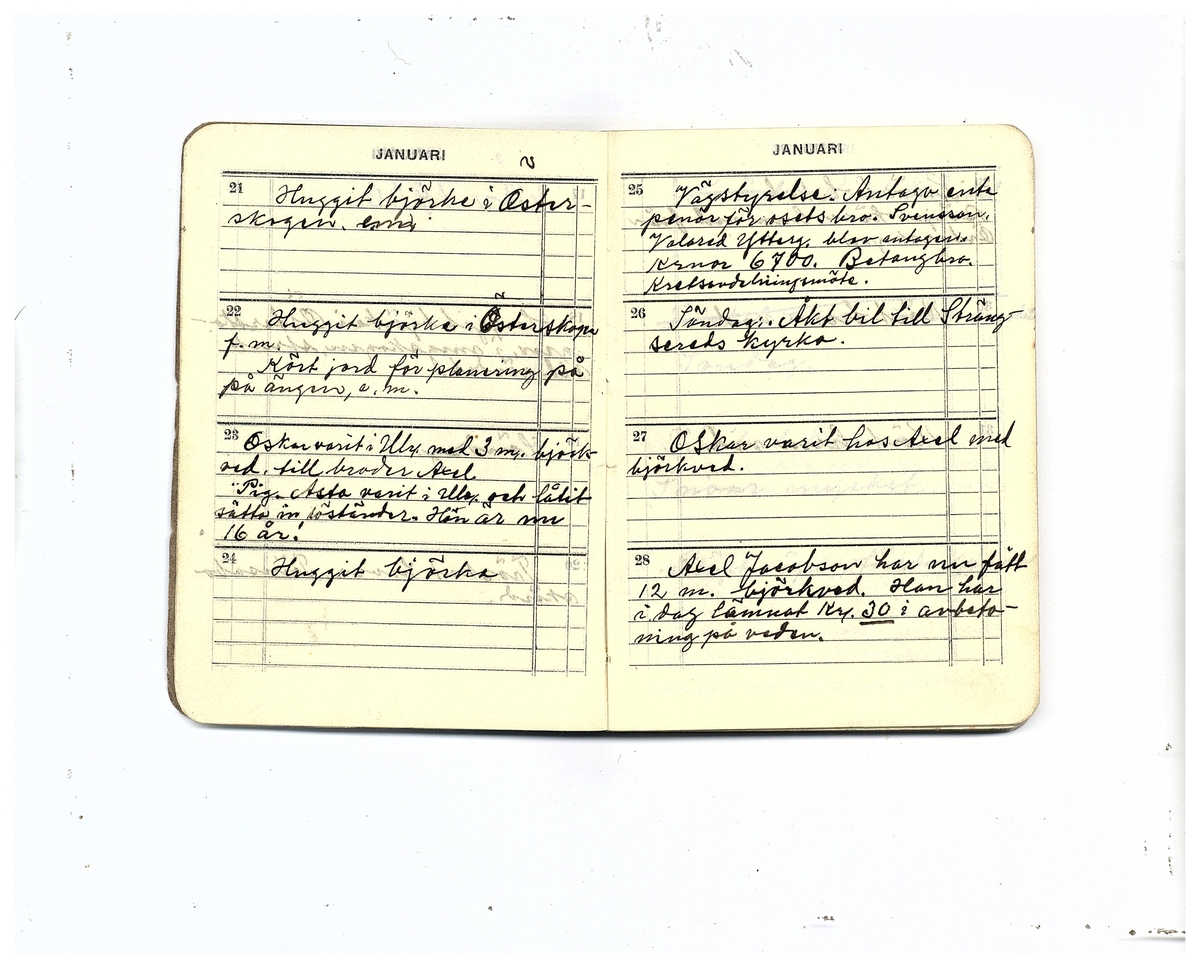 JANUARI
21 Huggit björke i Öster-
skogen.
22 Huggit björke i Österskogen
f. m.
Kört jord för planering på
på ängen, e. m.
23 Oskar varit i Ulr. med 3 m. björk-
ved. till broder Axel.
"Pig. Asta varit i Ulr. och låtit
sätta in löständer. Hon är nu
16 år!
24 Huggit björka
JANUARI
25 Vägstyrelse: Antagv ente
penör för osets bro. Svensson,
Valared Ytterg. blev antagen.
Kronor 6700. Betongbro.
Kretsavdelningsmöte.
26 Söndag: Åkt bil till Sträng-
sereds kyrka.
27 Oskar varit hos Axel med
björkved.
28 Axel Jacobson har nu fått
12 m. björkved. Han har
i dag lämnat Kr. 30 i avbeta-
ning på veden.